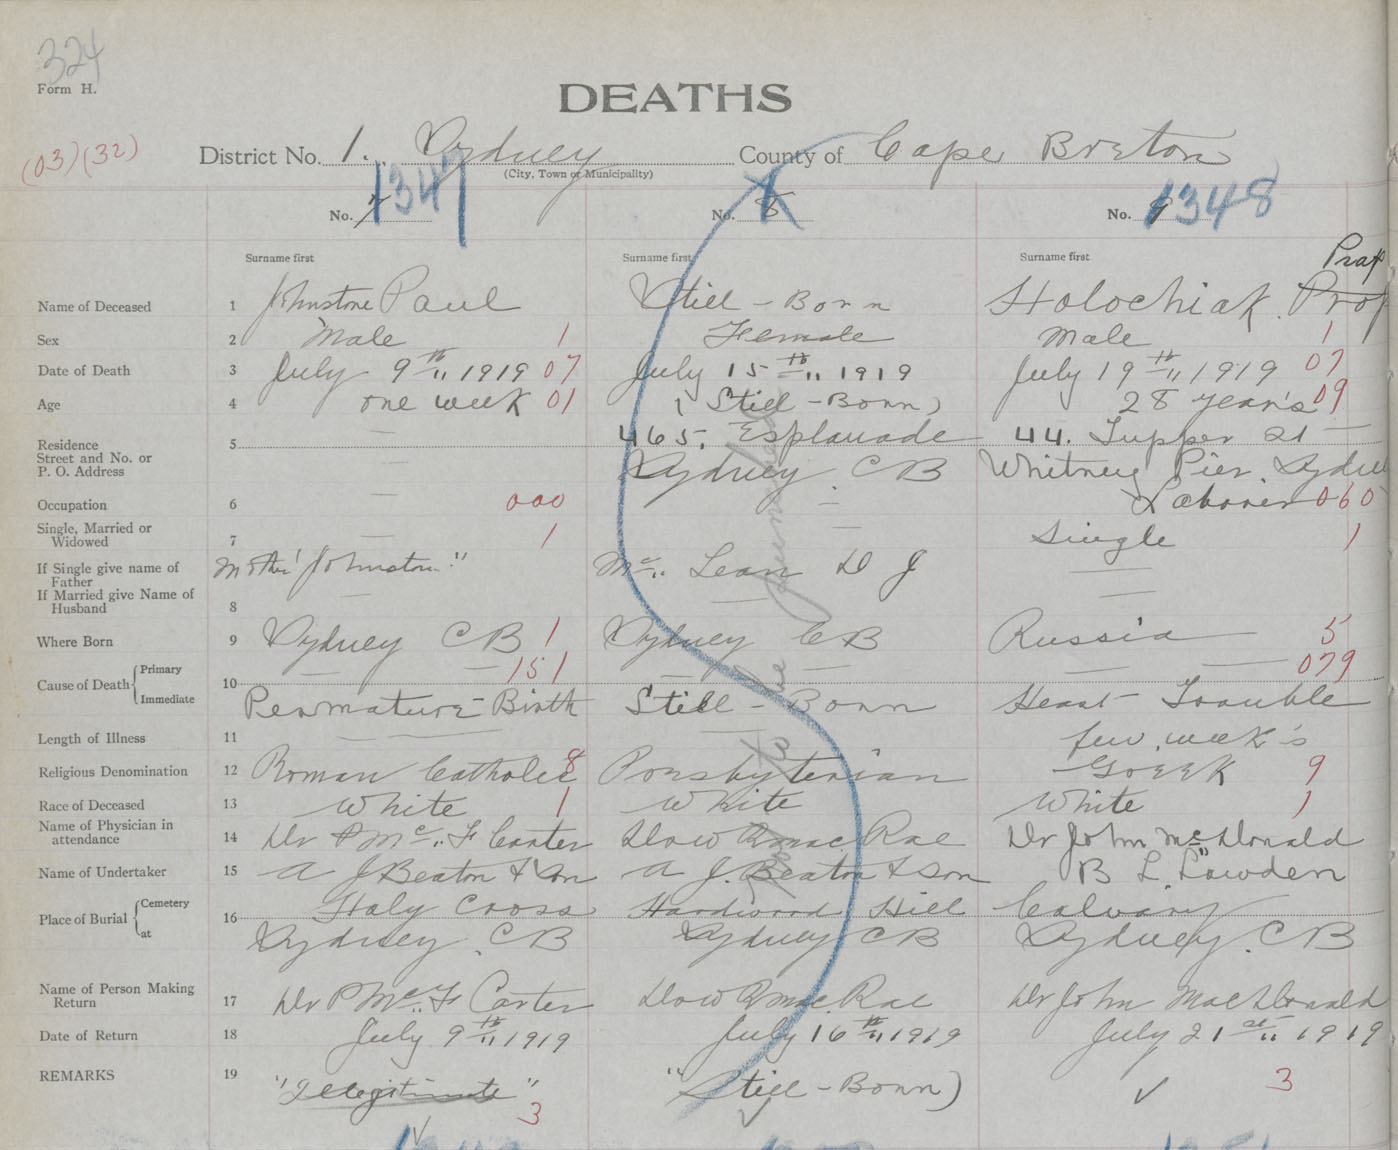 324
Form H.
DEATHS
(03) (32)
District No. 1. Sydney County of Cape Breton
(City, Town or Municipality)
1347 1348
No. 7 No. 8 No. 9
Surname first Surname first Surname first
Prof
Name of Deceased 1 Johnstone Paul Still - Born Holochiak. Prof
Sex 2 Male 1 Female Male 1
Date of Death 3 July 9th 1919 07 July 15th 1919 July 19th 1919 07
Age 4 one week 01 (Still - Born) 28 year's 09
Residence 5 465. Esplanade 44. Tupper St
Street and No. or
P. O. Address Sydney. C B Whitney Pier Sydney
Occupation 6 000 Laborer 060
Single, Married or
Widowed 7 1 Single 1
If Single give name of
Father Mother "Johnston" Mc Lean D J
If Married give Name of
Husband 8
Where Born 9 Sydney C B 1 Sydney C B Russia 5
Cause of Death Primary 10 151 079
Immediate Permature - Birth Still - Born Heart Trouble
Length of Illness 11 few week's
Religious Denomination 12 Roman Catholic 8 Presbyterian Greek 9
Race of Deceased 13 White 1 White White 1
Name of Physician in
attendance 14 Dr P Mc F Carter Mac Rae Dr John McDonald
Name of Undertaker 15 A J Beaton & Son A J. Beaton & Son B L. Lowden
Place of Burial Cemetery 16 Holy Cross Hardwood Hill Calvary
at Sydney. C B Sydney C B Sydney. C B
Name of Person Making
Return 17 Dr P Mc F Carter Mac Rae Dr John MacDonald
Date of Return 18 July 9th 1919 July 16th 1919 July 21st 1919
REMARKS 19 "Illegitimate" 3 "Still - Born) 3
Not to be